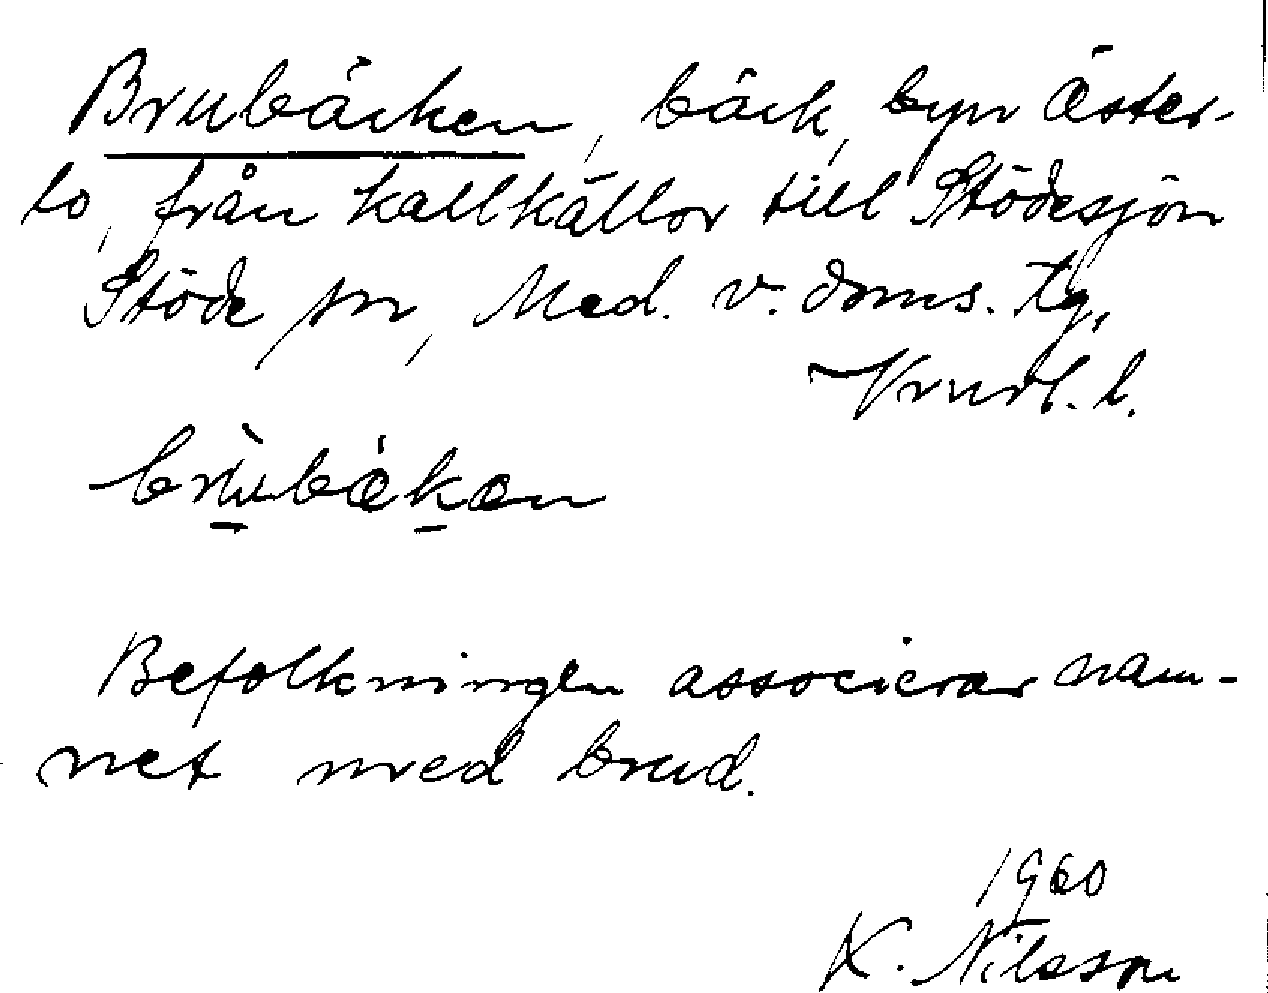 Brubäcken, bäck, byn Öster-
lo, från kallkällor till Stödesjön
Stöde sn, Med. v. doms. tg,
l.
brùbækæn
Befolkningen associerar nam-
net med brud.
1960
K. Nilsson